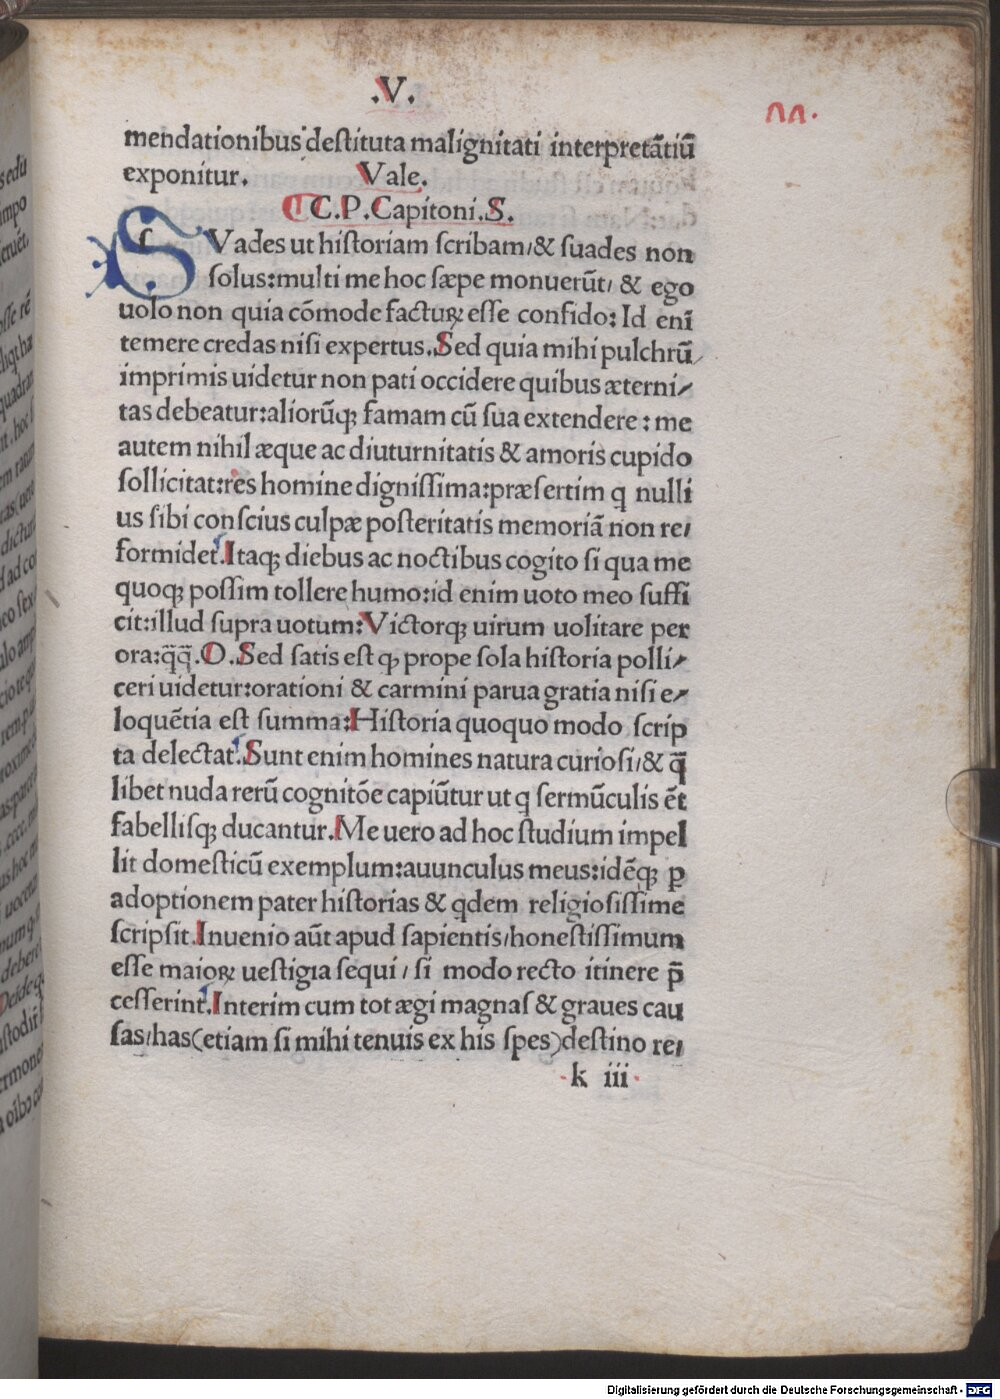 .V.
mendationibus deſtituta malignitati interpretātiū
exponitur. Vale.
C.P.Capitoni.S.
SVades ut hiſtoriam ſcribam/& ſuades non
ſolus:multi me hoc ſæpe monuerūt/ & ego
uolo non quia cōmode facturꝝ eſſe confido: Id enī
temere credas niſi expertus.Sed quia mihi pulchrū
imprimis uidetur non pati occidere quibus æterni/
tas debeatur:aliorūqꝫ famam cū ſua extendere : me
autem nihil æque ac diuturnitatis & amoris cupido
ſollicitat:res homine digniſſima:præſertim q nulli
us ſibi conſcius culpæ poſteritatis memoriā non re/
formidet.Itaqꝫ diebus ac noctibus cogito ſi qua me
quoqꝫ poſſim tollere humo:id enim uoto meo ſuffi
cit:illud ſupra uotum:Victorqꝫ uirum uolitare per
ora:q̄q̄.O.Sed ſatis eſt ꝙ prope ſola hiſtoria polli/
ceri uidetur:orationi & carmini parua gratia niſi e/
loquētia eſt ſumma:Hiſtoria quoquo modo ſcrip
ta delectat.Sunt enim homines natura curioſi/& q̄
libet nuda rerū cognitōe capiūtur ut q ſermūculis ēt
fabelliſqꝫ ducantur.Me uero ad hoc ſtudium impel
lit domeſticū exemplum:auunculus meus:idēqꝫ ꝑ
adoptionem pater hiſtorias & qdem religioſiſſime
ſcripſit.Inuenio aūt apud ſapientis/honeſtiſſimum
eſſe maioꝝ ueſtigia ſequi/ ſi modo recto itinere p̄
ceſſerint.Interim cum tot ægi magnaſ & graues cau
ſas/has(etiam ſi mihi tenuis ex his ſpes)deſtino re/
k iii